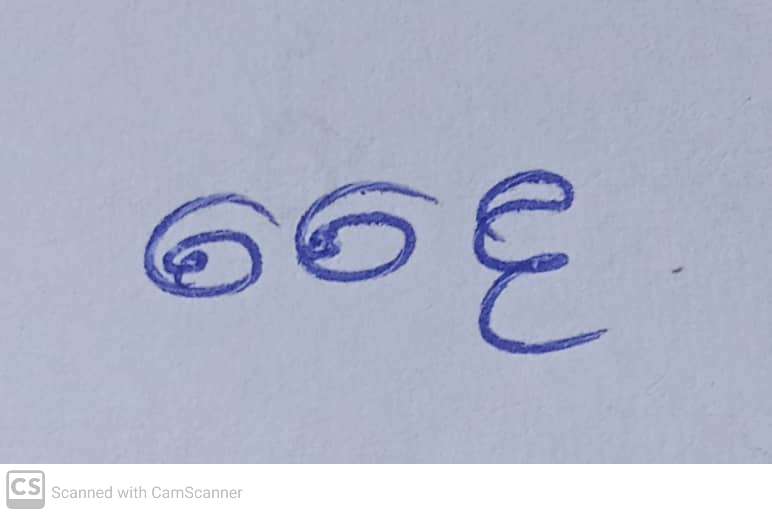 ദൈ
CS Scanned with CamScanner